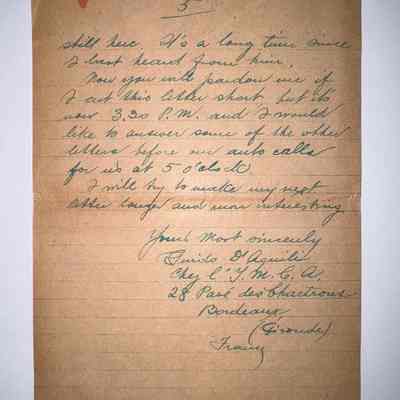 5
still here. It's a long time since
I last heard from him.
Now you will pardon me if
I cut this letter short but it's
now 3.30 P.M. and I would
like to answer some of the other
letters before our auto calls
for us at 5 o'clock
I will try to make my next
letter longer and more interesting
Yours most sincerely
Guido D'Aquila
Chez l'Y.M.C.A
28 Pavé des Chartrons
Bordeaux
(Gironde)
France